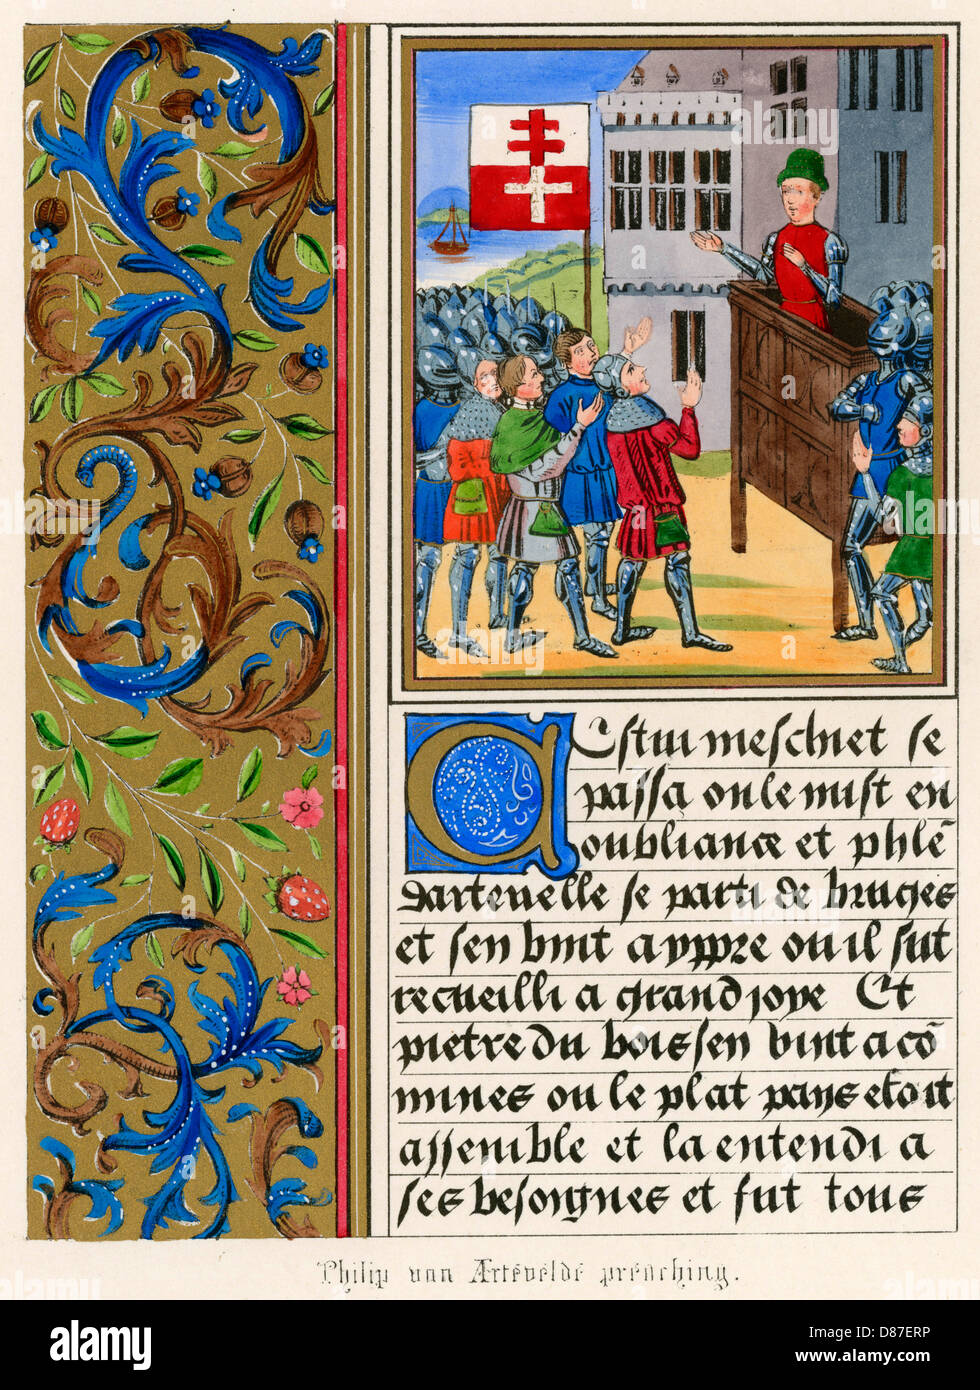 Cestui meschiet se
passa on le mist en
oubliance et phlē
dartevelle se parti de bruges
et sen vint a yppre ou il fut
recueilli a grand joye Et
pietre du bois sen vint a cō
mines ou le plat pays estoit
assemble et la entendi a
ses besoingnes et fut tous
Philip van Ærtevelde preaching.
alamy
Image ID: D87ERP
www.alamy.com